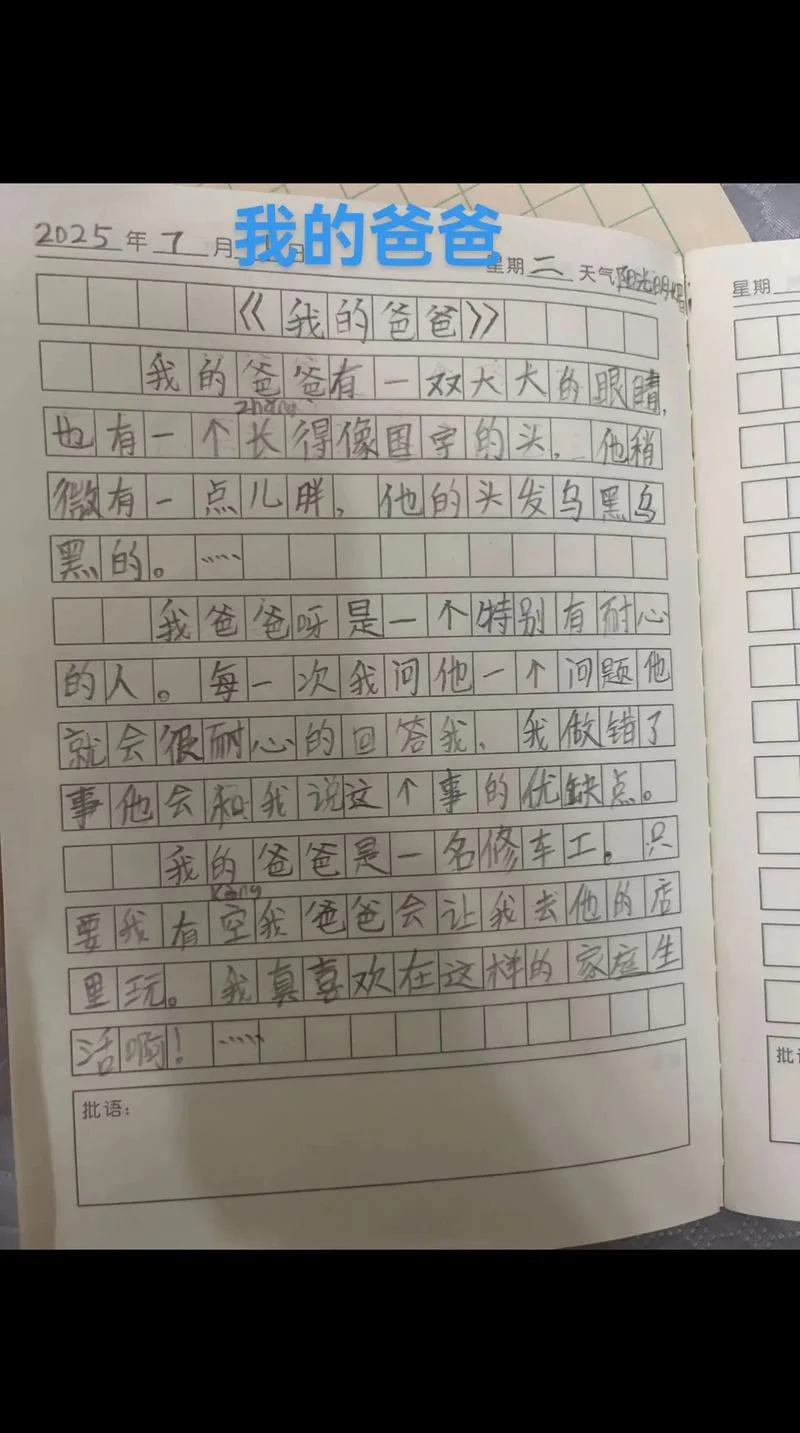 我的爸爸
2025年7月 日 星期二 天气阳光明媚
星期
《我的爸爸》
我的爸爸有一双大大的眼睛,
zhǎng
也有一个长得像国字的头, 他稍
微有一点儿胖, 他的头发乌黑乌
黑的。……
我爸爸呀是一个特别有耐心
的人。每一次我问他一个问题他
就会很耐心的回答我、我做错了
事他会和我说这个事的优缺点。
我的爸爸是一名修车工。只
kòng
要我有空我爸爸会让我去他的店
里玩。我真喜欢在这样的家庭生
活啊!……
批语:
批